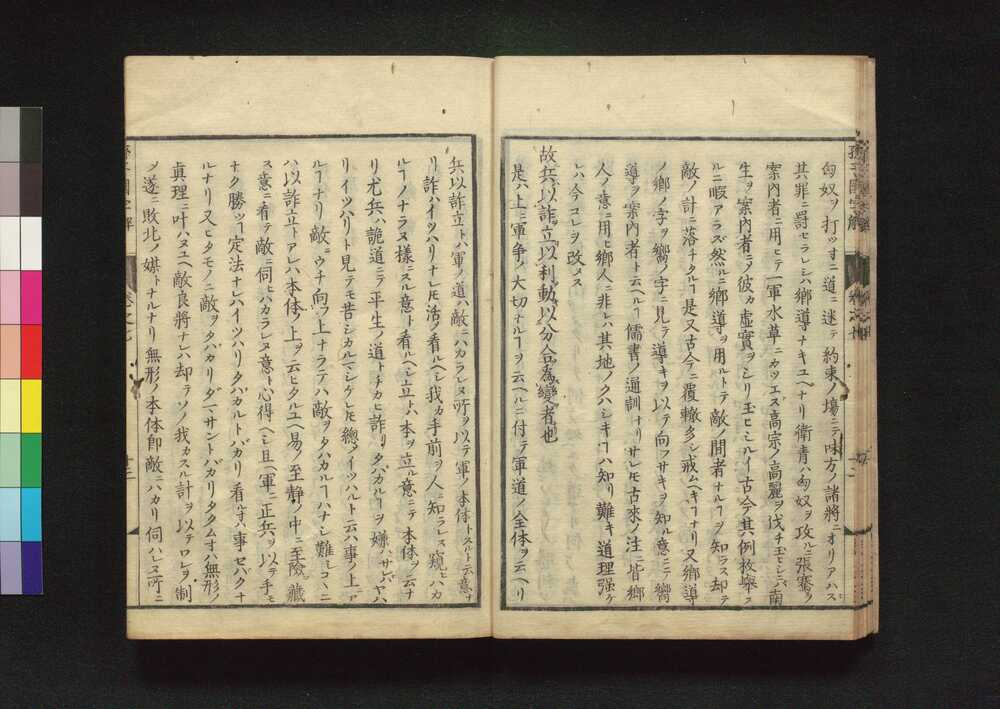 匈奴ヲ打ツ𪜈ニ道ニ迷テ約束ノ場ニテ味方ノ諸將ニオリアハス
其罪ニ罸セラレシハ鄕導ナキユヘナリ衛青ハ匈奴ヲ攻ルニ張騫ヲ
案内者ニ用ヒテ一軍水草ニカツエス高宗ノ高麗ヲ伐チ玉ヒシニハ南
生ヲ案内者ニメ彼カ虛實ヲシリ玉ヒシルイ古今其例枚擧スル
ルニ暇アラズ然ルニ鄕導ヲ用ルトテ敵ノ間者ナルヿヲ知ラス却テ
敵ノ計ニ落チタルヿ是又古今ニ覆轍多シ戒ムヘキヿナリ又鄕導
ノ鄕ノ字ヲ嚮ノ字ニ見テ導キヲ以テ向フサキヲ知ル意ニテ嚮
導ヲ案内者ト云ヘルヿ儒書ノ通訓ナリサレ𪜈古來ノ注ニ皆鄕
人ノ意ニ用ヒ鄕人ニ非レハ其地ノクハシキヿハ知リ難キ道理强ケ
レハ今コレヲ改メス
故兵以詐立以利動以分合為變者也
是ハ上ニ軍爭ノ大切ナルヿヲ云ヘルニ付テ軍道ノ全体ヲ云ヘリ
兵以詐立トハ軍ノ道ハ敵ニハカラレヌ所ヲ以テ軍ノ本体トスルト云意ナ
リ詐ハイツハリナレ𪜈活メ看ルヘシ我カ手前ヲ人ニ知ラレス窺ヒハカ
ルヿノナラヌ樣ニスル意ト看ルヘシ立トハ本ヲ立ル意ニテ本体ヲ云ナ
リ尤兵ハ詭道ニテ平生ノ道トチカヒ詐リタバカルヿヲ嫌ハサレハ
リイツハリト見テモ苦シカルマシケレ𪜈總メイツハルト云ハ事ノ上ニア
ルヿナリ敵ニウチ向フ上ナラテハ敵ヲタハカルヿハナシ難シコヽニ
ハ以詐立トアレハ本体ノ上ヲ云ヒタルユヘ易ノ至靜ノ中ニ至險ヲ藏
ス意ニ看テ敵ニ伺ヒハカラレヌ意ト心得ヘシ且ハ軍ニ正兵ヲ以テ手モ
ナク勝ツヿ定法ナレハイツハリタバカルトバカリ看ル𪜈ハ事セバクナ
ルナリ又ヒタモノニ敵ヲタバカリダマサントバカリタクム𪜈ハ無形ノ
眞理ニ叶ハヌユヘ敵良將ナレハ却テソノ我カスル計ヲ以テワレヲ制
メ遂ニ敗北ノ媒トナルナリ無形ノ本体卽敵ニハカリ伺ハレヌ所ニ
孫子國字解
卷之七